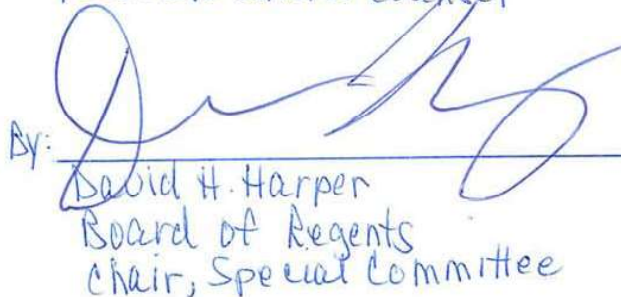 By:
David H. Harper
Board of Regents
Chair, Special Committee